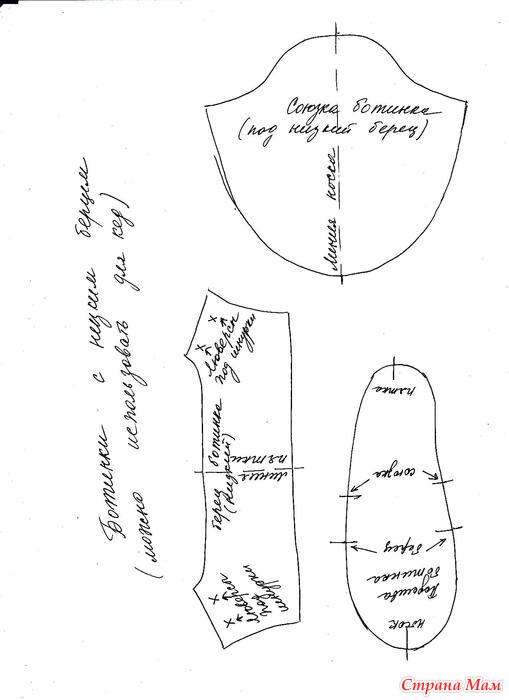 Ботинки с низким берцем
(можно использовать для кед)
Союзка ботинка
(под низкий берец)
Линия носка
люверсы
под шнурки
берец ботинка
(низкий)
линия
пятки
люверсы
под
шнурки
пятка
союзка
берец
Подошва
ботинка
носок
Страна Мам